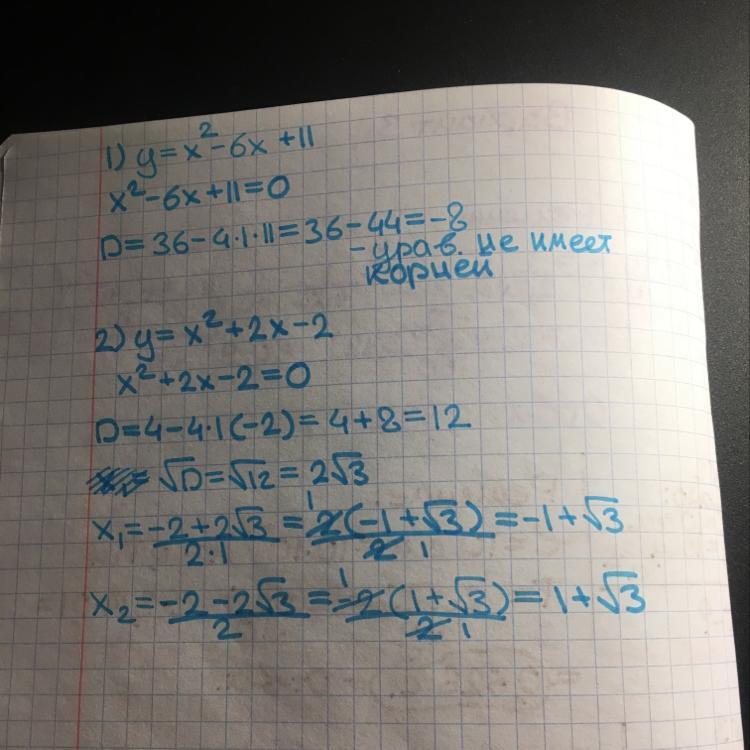 1) y=x²-6x+11
x²-6x+11=0
D=36-4·1·11=36-44=-8
-урав. не имеет
корней
2) y=x²+2x-2
x²+2x-2=0
D=4-4·1(-2)=4+8=12
√D=√12=2√3
x₁=(-2+2√3)/(2·1)=2(-1+√3)/2=-1+√3
x₂=(-2-2√3)/2=-2(1+√3)/2=1+√3